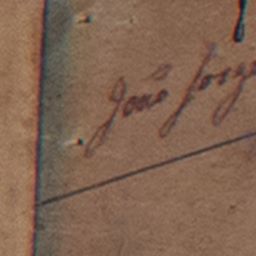 João Jorge